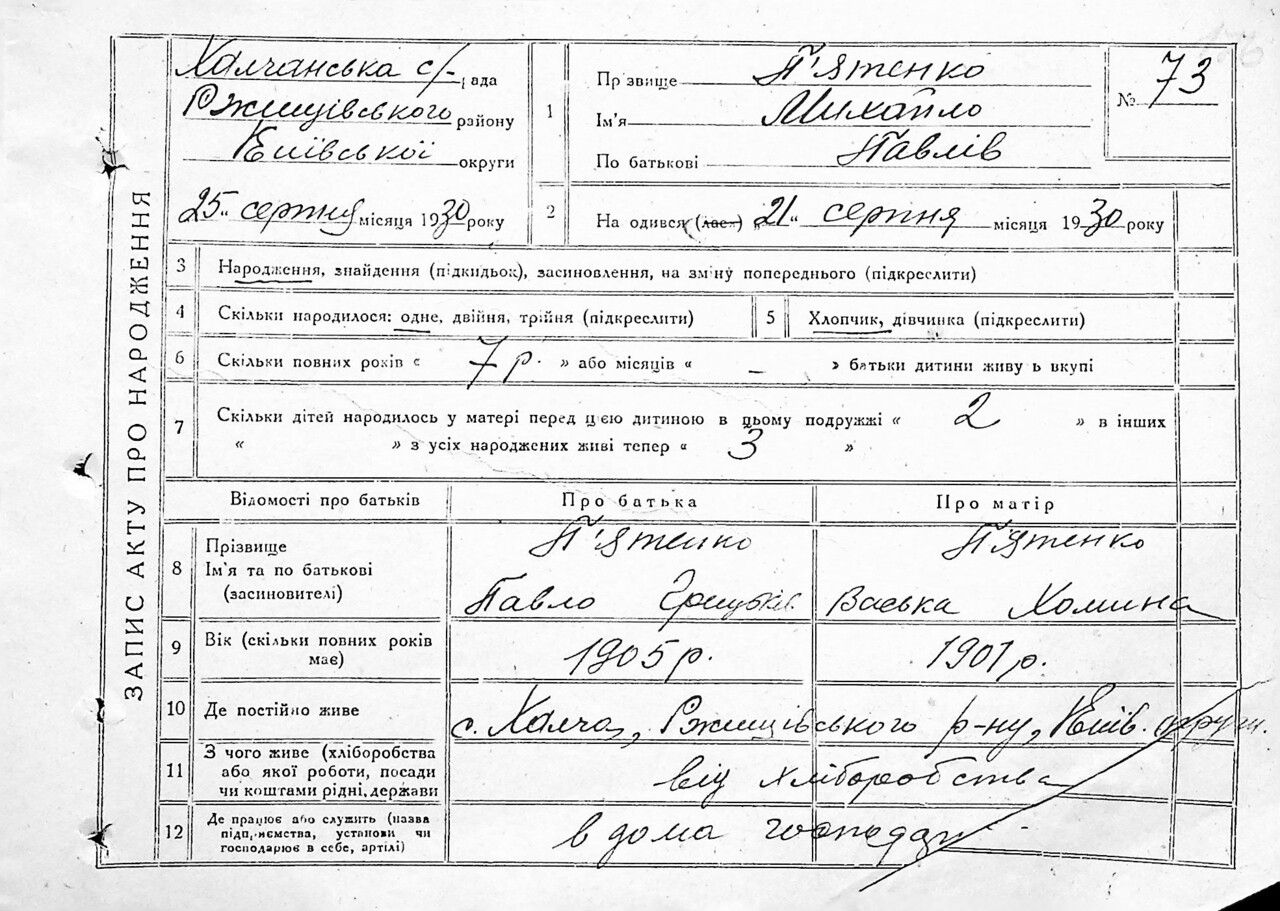 ЗАПИС АКТУ ПРО НАРОДЖЕННЯ
Халчанська с/-рада
Ржищівського району
Київської округи
25 серпня місяця 1930 року
1 Прізвище П'ятенко
Ім'я Михайло
По батькові Павлів
№ 73
176
2 На одився (лася) „21" серпня місяця 1930 року
3 Народження, знайдення (підкидьок), засиновлення, на зміну попереднього (підкреслити)
4 Скільки народилося: одне, двійня, трійня (підкреслити) 5 Хлопчик, дівчинка (підкреслити)
6 Скільки повних років « 7 р. » або місяців « – » батьки дитини живу ь вкупі
7 Скільки дітей народилось у матері перед цією дитиною в цьому подружжі « 2 » в інших
« » з усіх народжених живі тепер « 3 »
Відомості про батьків Про батька Про матір
8 Прізвище П'ятенко П'ятенко
Ім'я та по батькові
(засиновителі) Павло Грицьків Васька Хомина
9 Вік (скільки повних років
має) 1905 р. 1901 р.
10 Де постійно живе с. Халча, Ржищівського р-ну, Київ. округи.
11 З чого живе (хліборобства
або якої роботи, посади
чи коштами рідні, держави від хліборобства
12 Де працює або служить (назва
підприємства, установи чи
господарює в себе, артілі) в дома господар